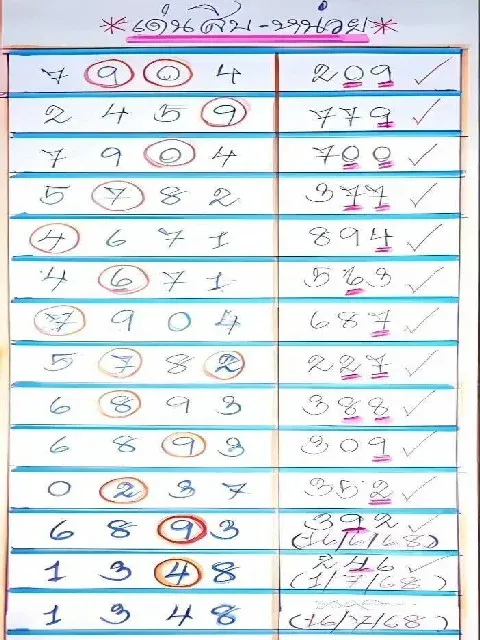 *เด่นสิบ-หน่วย*
7 9 0 4 209 ✓
2 4 5 9 779 ✓
7 9 0 4 700 ✓
5 7 8 2 377 ✓
4 6 7 1 894 ✓
4 6 7 1 563 ✓
7 9 0 4 687 ✓
5 7 8 2 227 ✓
6 8 9 3 388 ✓
6 8 9 3 309 ✓
0 2 3 7 352 ✓
6 8 9 3 392 ✓
(16/6/68)
1 3 4 8 246 ✓
(1/7/68)
1 3 4 8
(16/7/68)